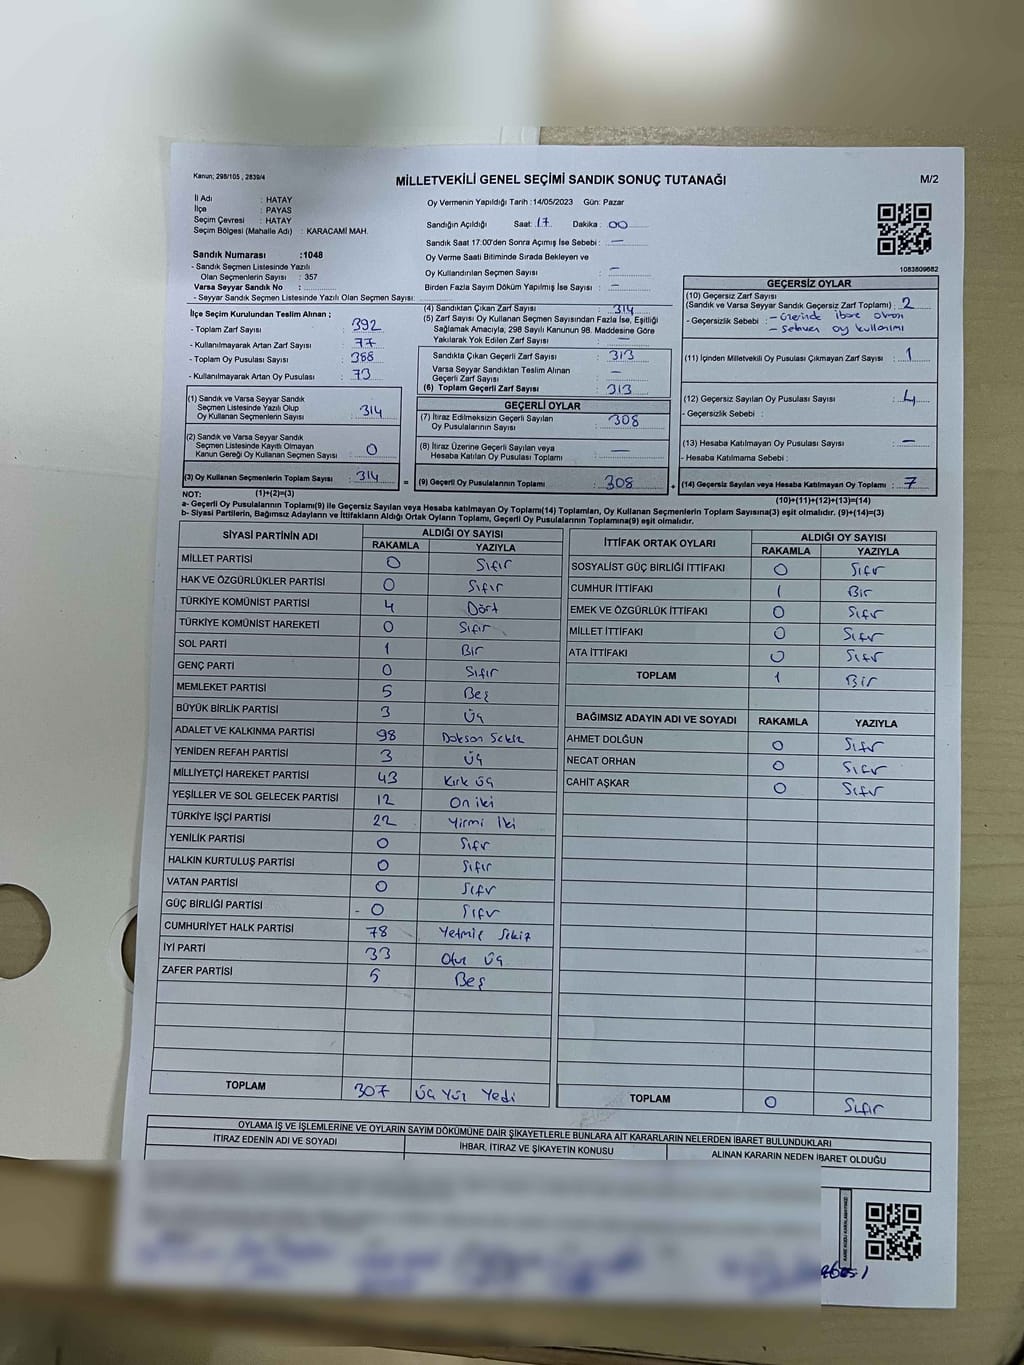 Kanun; 298/105 , 2839/4
MİLLETVEKİLİ GENEL SEÇİMİ SANDIK SONUÇ TUTANAĞI
M/2
İl Adı : HATAY
İlçe : PAYAS
Seçim Çevresi : HATAY
Seçim Bölgesi (Mahalle Adı) : KARACAMİ MAH.
Oy Vermenin Yapıldığı Tarih :14/05/2023 Gün: Pazar
Sandığın Açıldığı Saat: 17 Dakika : 00
Sandık Saat 17:00'den Sonra Açımış İse Sebebi : —
Oy Verme Saati Bitiminde Sırada Bekleyen ve
Oy Kullandırılan Seçmen Sayısı : —
Birden Fazla Sayım Döküm Yapılmış İse Sayısı : —
1083809682
Sandık Numarası :1048
- Sandık Seçmen Listesinde Yazılı
Olan Seçmenlerin Sayısı : 357
Varsa Seyyar Sandık No :
- Seyyar Sandık Seçmen Listesinde Yazılı Olan Seçmen Sayısı:
İlçe Seçim Kurulundan Teslim Alınan ;
- Toplam Zarf Sayısı : 392
- Kullanılmayarak Artan Zarf Sayısı : 77
- Toplam Oy Pusulası Sayısı : 388
- Kullanılmayarak Artan Oy Pusulası : 73
(1) Sandık ve Varsa Seyyar Sandık
Seçmen Listesinde Yazılı Olup
Oy Kullanan Seçmenlerin Sayısı : 314
(2) Sandık ve Varsa Seyyar Sandık
Seçmen Listesinde Kayıtlı Olmayan
Kanun Gereği Oy Kullanan Seçmen Sayısı : 0
(3) Oy Kullanan Seçmenlerin Toplam Sayısı : 314
(1)+(2)=(3)
(4) Sandıktan Çıkan Zarf Sayısı : 314
(5) Zarf Sayısı Oy Kullanan Seçmen Sayısından Fazla İse, Eşitliği
Sağlamak Amacıyla, 298 Sayılı Kanunun 98. Maddesine Göre
Yakılarak Yok Edilen Zarf Sayısı : —
Sandıkta Çıkan Geçerli Zarf Sayısı : 313
Varsa Seyyar Sandıktan Teslim Alınan
Geçerli Zarf Sayısı : —
(6) Toplam Geçerli Zarf Sayısı : 313
GEÇERLİ OYLAR
(7) İtiraz Edilmeksizin Geçerli Sayılan
Oy Pusulalarının Sayısı : 308
(8) İtiraz Üzerine Geçerli Sayılan veya
Hesaba Katılan Oy Pusulası Toplamı : —
= (9) Geçerli Oy Pusulalarının Toplamı : 308
GEÇERSİZ OYLAR
(10) Geçersiz Zarf Sayısı
(Sandık ve Varsa Seyyar Sandık Geçersiz Zarf Toplamı) : 2
- Geçersizlik Sebebi : - üzerinde ibare olması
- Sehven oy kullanımı
(11) İçinden Milletvekili Oy Pusulası Çıkmayan Zarf Sayısı : 1
(12) Geçersiz Sayılan Oy Pusulası Sayısı : 4
- Geçersizlik Sebebi :
(13) Hesaba Katılmayan Oy Pusulası Sayısı : —
- Hesaba Katılmama Sebebi :
+ (14) Geçersiz Sayılan veya Hesaba Katılmayan Oy Toplamı : 7
(10)+(11)+(12)+(13)=(14)
NOT:
a- Geçerli Oy Pusulalarının Toplamı(9) ile Geçersiz Sayılan veya Hesaba katılmayan Oy Toplamı(14) Toplamları, Oy Kullanan Seçmenlerin Toplam Sayısına(3) eşit olmalıdır. (9)+(14)=(3)
b- Siyasi Partilerin, Bağımsız Adayların ve İttifakların Aldığı Ortak Oyların Toplamı, Geçerli Oy Pusulalarının Toplamına(9) eşit olmalıdır.
SİYASİ PARTİNİN ADI ALDIĞI OY SAYISI
RAKAMLA YAZIYLA
MİLLET PARTİSİ 0 Sıfır
HAK VE ÖZGÜRLÜKLER PARTİSİ 0 Sıfır
TÜRKİYE KOMÜNİST PARTİSİ 4 Dört
TÜRKİYE KOMÜNİST HAREKETİ 0 Sıfır
SOL PARTİ 1 Bir
GENÇ PARTİ 0 Sıfır
MEMLEKET PARTİSİ 5 Beş
BÜYÜK BİRLİK PARTİSİ 3 Üç
ADALET VE KALKINMA PARTİSİ 98 Doksan Sekiz
YENİDEN REFAH PARTİSİ 3 Üç
MİLLİYETÇİ HAREKET PARTİSİ 43 Kırk üç
YEŞİLLER VE SOL GELECEK PARTİSİ 12 On iki
TÜRKİYE İŞÇİ PARTİSİ 22 Yirmi İki
YENİLİK PARTİSİ 0 Sıfır
HALKIN KURTULUŞ PARTİSİ 0 Sıfır
VATAN PARTİSİ 0 Sıfır
GÜÇ BİRLİĞİ PARTİSİ - 0 Sıfır
CUMHURİYET HALK PARTİSİ 78 Yetmiş Sekiz
İYİ PARTİ 33 Otuz Üç
ZAFER PARTİSİ 5 Beş
TOPLAM 307 Üç Yüz Yedi
İTTİFAK ORTAK OYLARI ALDIĞI OY SAYISI
RAKAMLA YAZIYLA
SOSYALİST GÜÇ BİRLİĞİ İTTİFAKI 0 Sıfır
CUMHUR İTTİFAKI 1 Bir
EMEK VE ÖZGÜRLÜK İTTİFAKI 0 Sıfır
MİLLET İTTİFAKI 0 Sıfır
ATA İTTİFAKI 0 Sıfır
TOPLAM 1 Bir
BAĞIMSIZ ADAYIN ADI VE SOYADI RAKAMLA YAZIYLA
AHMET DOLĞUN 0 Sıfır
NECAT ORHAN 0 Sıfır
CAHİT AŞKAR 0 Sıfır
TOPLAM 0 Sıfır
OYLAMA İŞ VE İŞLEMLERİNE VE OYLARIN SAYIM DÖKÜMÜNE DAİR ŞİKAYETLERLE BUNLARA AİT KARARLARIN NELERDEN İBARET BULUNDUKLARI
İTİRAZ EDENİN ADI VE SOYADI
İHBAR, İTİRAZ VE ŞİKAYETİN KONUSU
ALINAN KARARIN NEDEN İBARET OLDUĞU